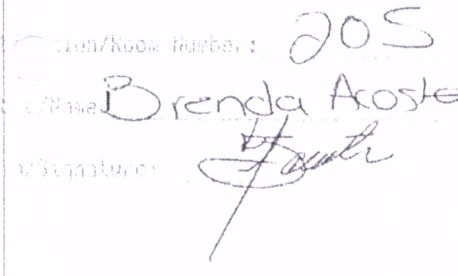 /Room Number: 205
/Name Brenda Acoste
Signature: